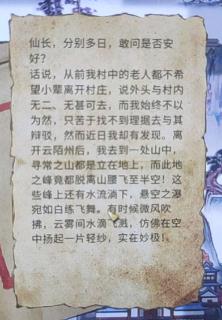 仙长，分别多日，敢问是否安
好？
话说，从前我村中的老人都不希
望小辈离开村庄，说外头与村内
无二、无甚可去，而我始终不以
为然，只苦于找不到理据去与其
辩驳，然而近日我却有发现。离
开云陌州后，我去到一处山中，
寻常之山都是立在地上，而此地
之峰竟都脱离山腰飞至半空！这
些峰上还有水流淌下，悬空之瀑
宛如白练飞舞。有时候微风吹
拂，云雾间水滴飞溅，仿佛在空
中扬起一片轻纱，实在妙极！